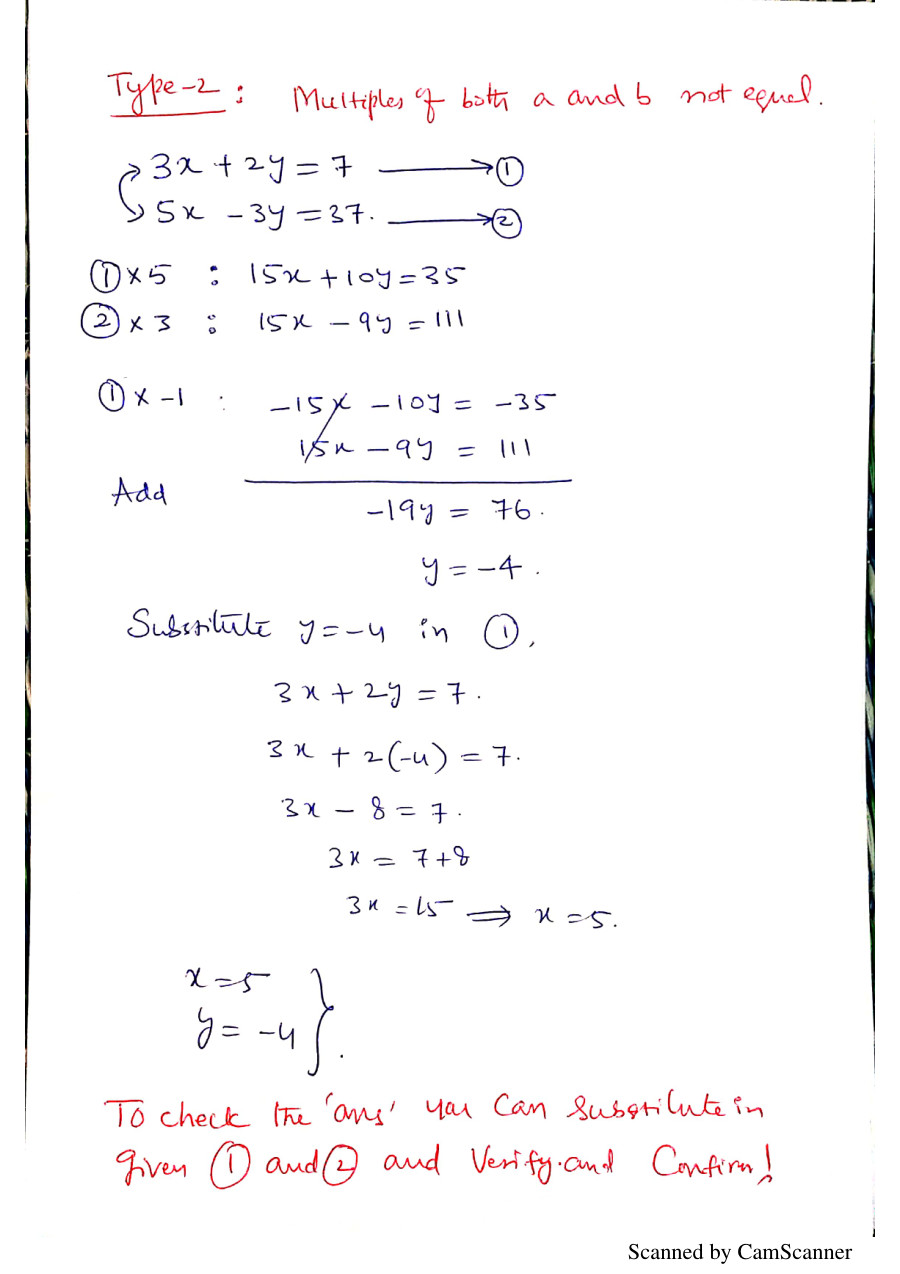 Type-2 : Multiples of both a and b not equal.
3x + 2y = 7 ⟶ ①
5x - 3y = 37. ⟶ ②
① x 5 : 15x + 10y = 35
② x 3 : 15x - 9y = 111
① x -1 : -15x - 10y = -35
15x - 9y = 111
Add
-19y = 76.
y = -4.
Substitute y = -4 in ①,
3x + 2y = 7.
3x + 2(-4) = 7.
3x - 8 = 7.
3x = 7+8
3x = 15 ⟹ x = 5.
x = 5
y = -4 }.
To check the 'ans' you can substitute in
given ① and ② and verify and Confirm!
Scanned by CamScanner